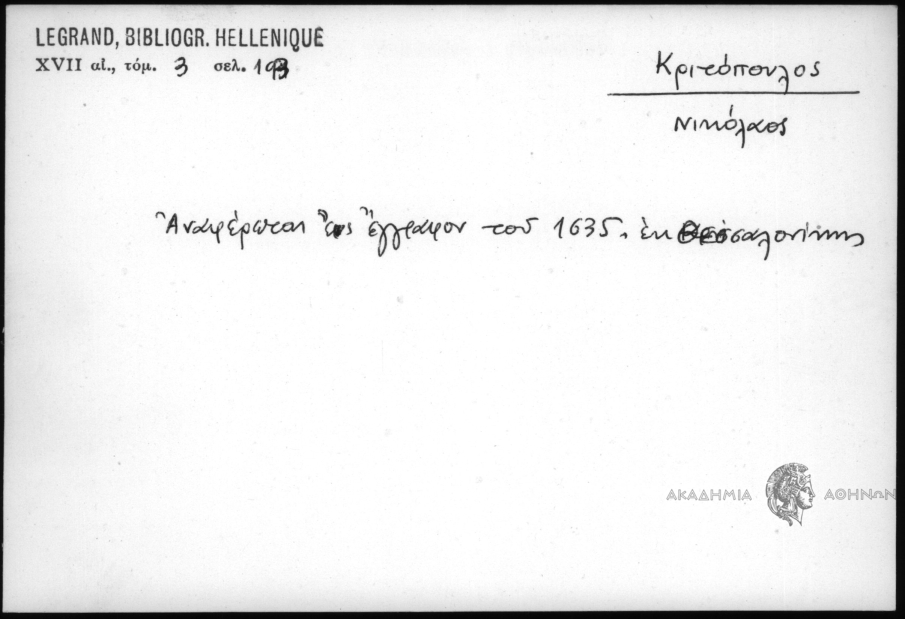 LEGRAND, BIBLIOGR. HELLENIQUE
XVII αἰ., τόμ. 3 σελ. 193
Κριτόπουλος
Νικόλαος
Ἀναφέρεται εἰς ἔγγραφον τοῦ 1635, ἐκ Θεσσαλονίκης
ΑΚΑΔΗΜΙΑ ΑΘΗΝΩΝ